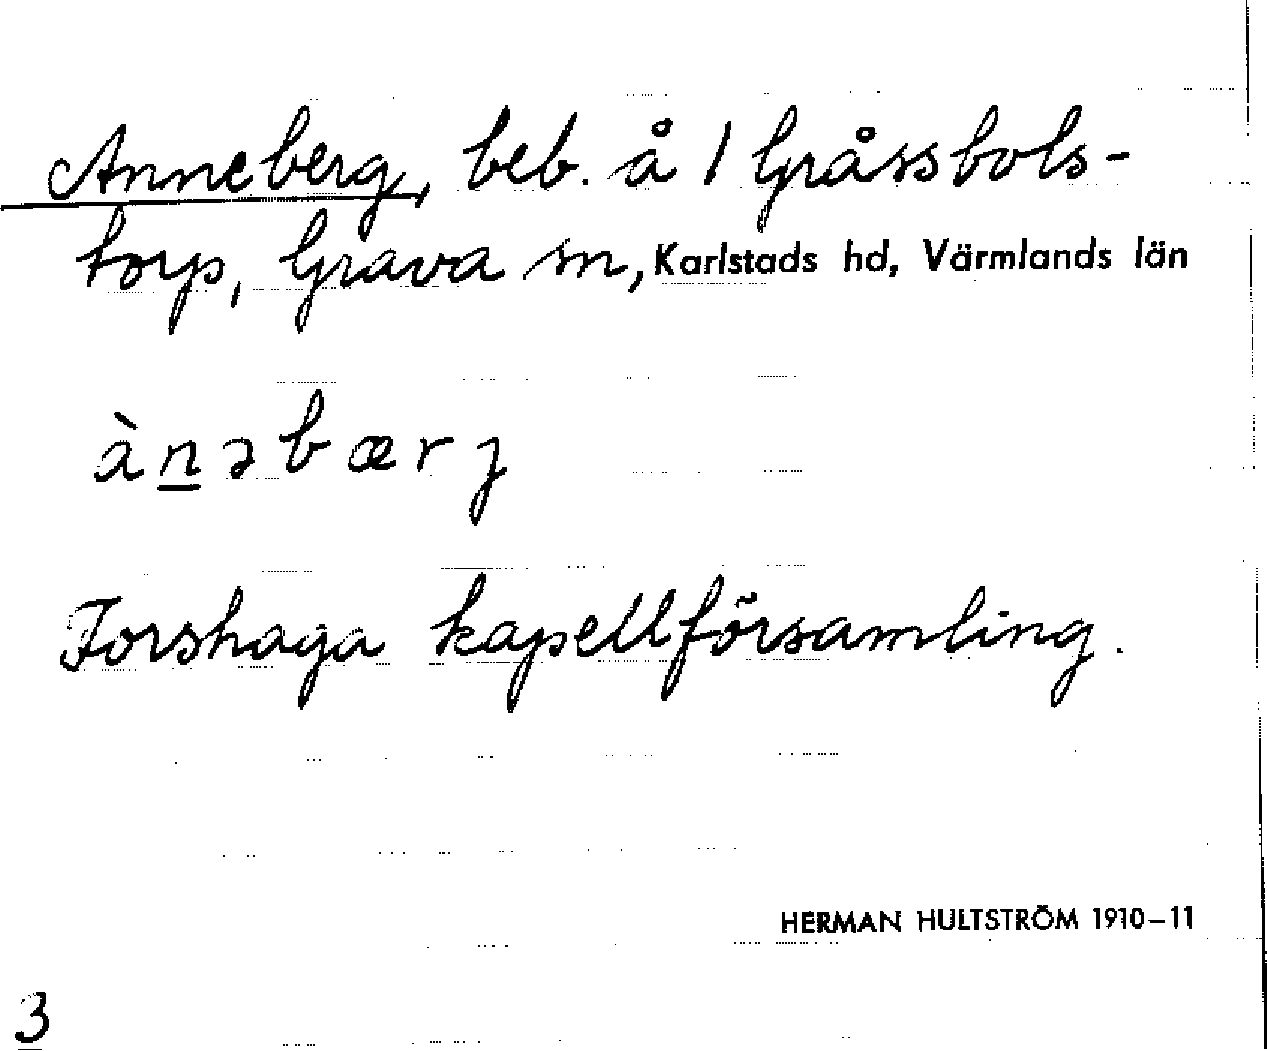 Anneberg, beb. å 1 Gråssbols-
torp, Grava sn, Karlstads hd, Värmlands län
ànəbærj
Forshaga kapellförsamling.
HERMAN HULTSTRÖM 1910–11
3